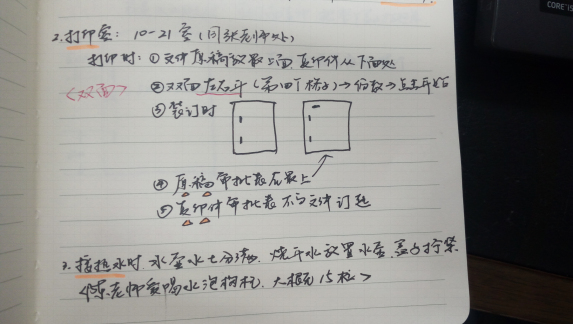 CORE i5
2.打印室：10-21室(同张老师处)
打印时：①文件原稿放最上面 复印件从下面处
<双面>
②双面左右开(第四个格子)→份数→点击开始
③装订时
④原稿审批表在最上
⑤复印件审批表不与文件订起
3.接热水时.水壶水七分满.烧开水放置水壶.盖
老师爱喝水泡枸杞.大概15粒>